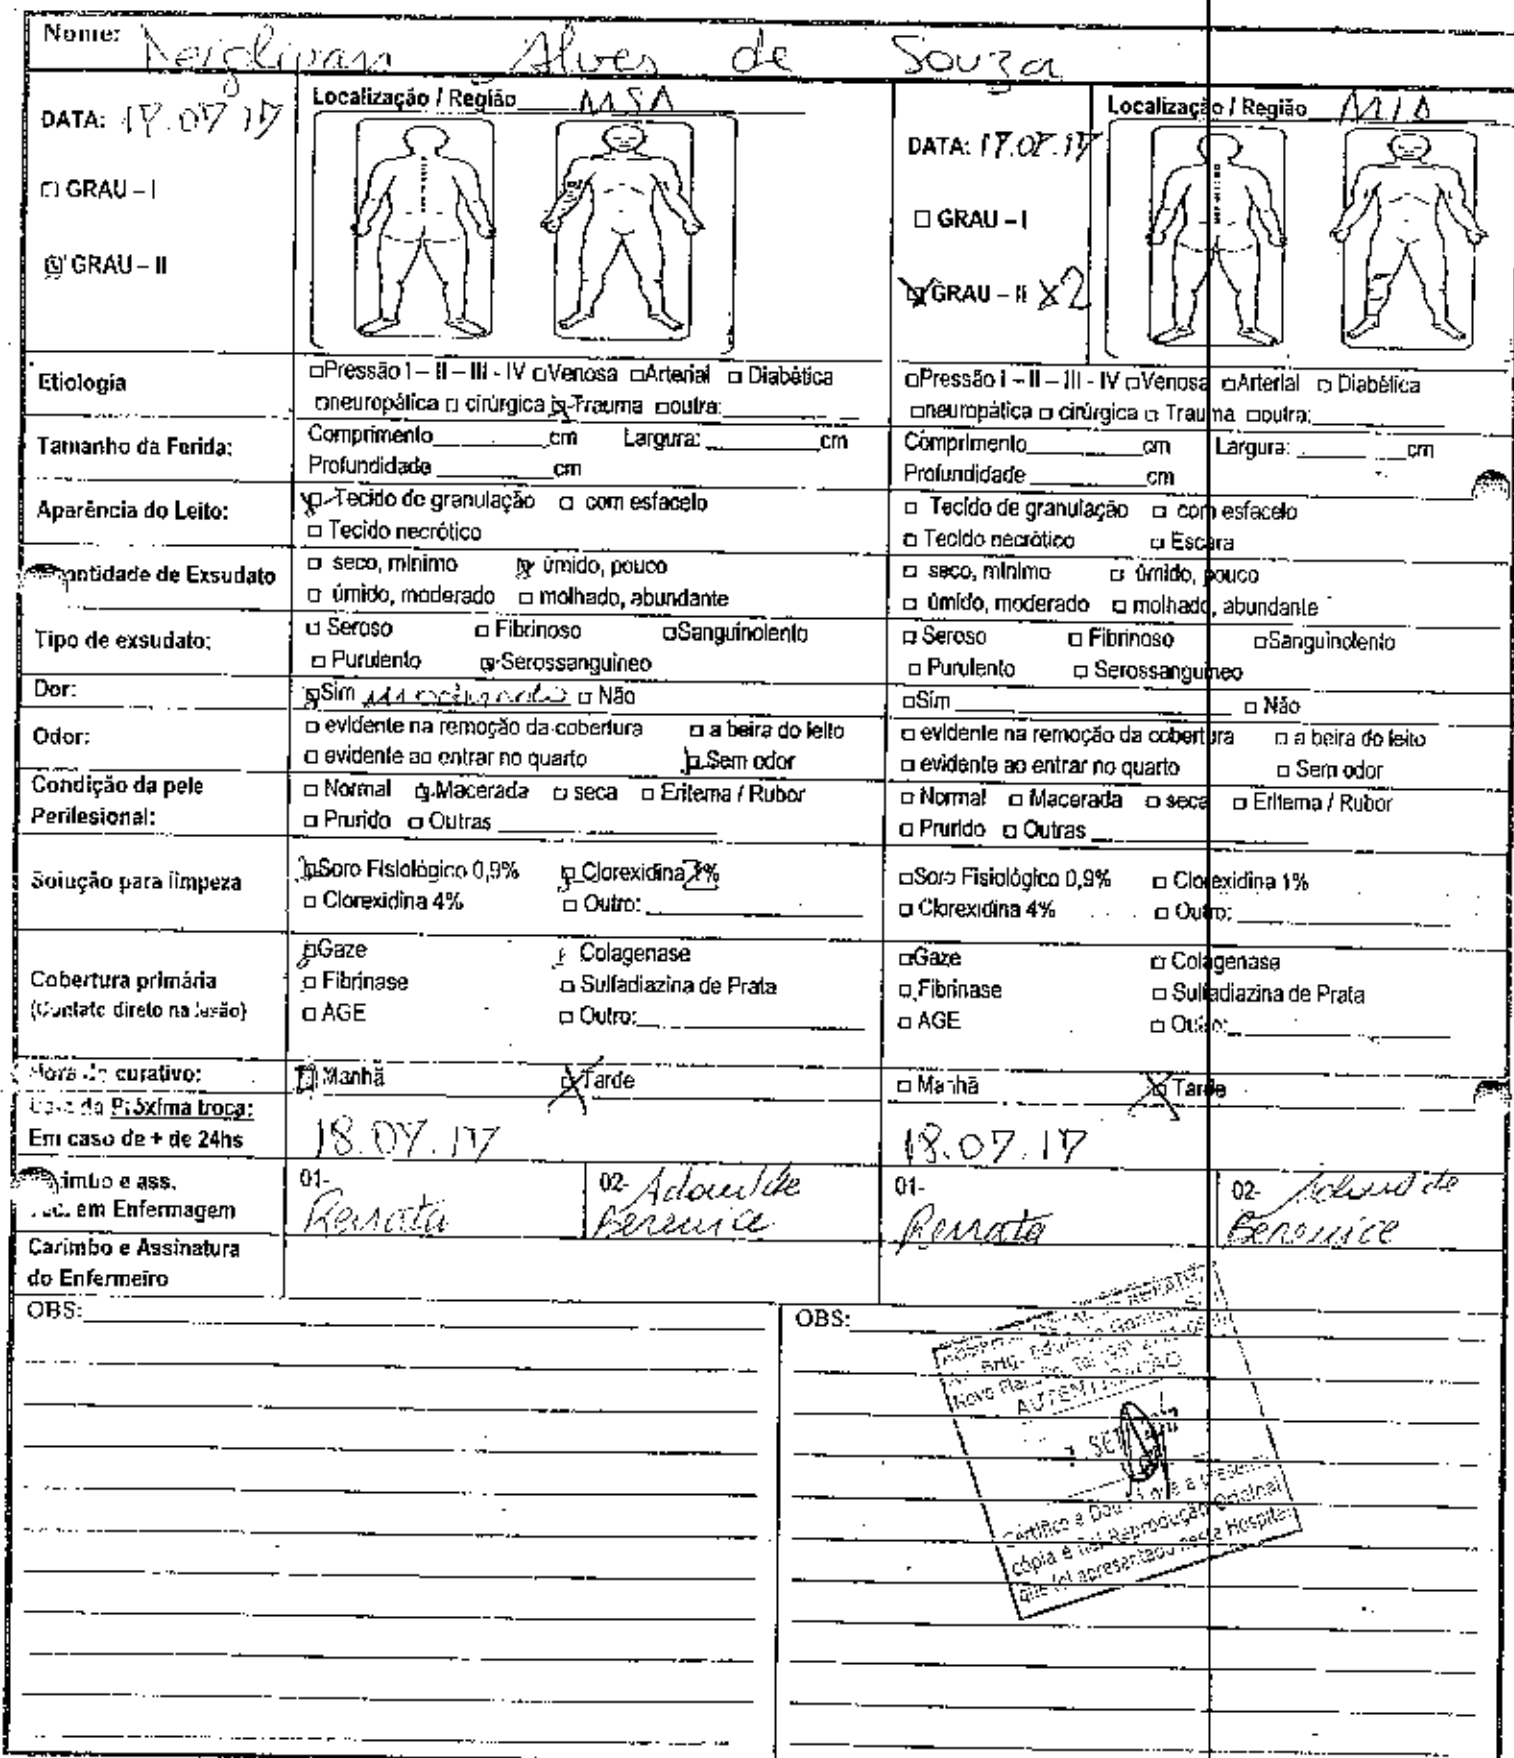 Nome: Alves de Souza
DATA: 17.07.17
Localização / Região MSD
□ GRAU – I
☒ GRAU – II
DATA: 17.07.17
Localização / Região MID
□ GRAU – I
☒ GRAU – II X2
Etiologia
□Pressão I – II – III - IV □Venosa □Arterial □ Diabética
□neuropática □ cirúrgica ☒ Trauma □outra:
□Pressão I – II – III - IV □Venosa □Arterial □ Diabética
□neuropática □ cirúrgica □ Trauma □outra:
Tamanho da Ferida:
Comprimento ______cm Largura: ______cm
Profundidade ______cm
Comprimento ______cm Largura: ______cm
Profundidade ______cm
Aparência do Leito:
☒ Tecido de granulação □ com esfacelo
□ Tecido necrótico
□ Tecido de granulação □ com esfacelo
□ Tecido necrótico □ Escara
de Exsudato
□ seco, mínimo ☒ úmido, pouco
□ úmido, moderado □ molhado, abundante
□ seco, mínimo □ úmido, pouco
□ úmido, moderado □ molhado, abundante
Tipo de exsudato:
□ Seroso □ Fibrinoso □Sanguinolento
□ Purulento ☒ Serossanguineo
□ Seroso □ Fibrinoso □Sanguinolento
□ Purulento □ Serossanguineo
Dor:
☒Sim moderado □ Não
□Sim ______ □ Não
Odor:
□ evidente na remoção da cobertura □ a beira do leito
□ evidente ao entrar no quarto ☒ Sem odor
□ evidente na remoção da cobertura □ a beira do leito
□ evidente ao entrar no quarto □ Sem odor
Condição da pele
Perilesional:
□ Normal ☒ Macerada □ seca □ Eritema / Rubor
□ Prurido □ Outras
□ Normal □ Macerada □ seca □ Eritema / Rubor
□ Prurido □ Outras
Solução para limpeza
☒Soro Fisiológico 0,9% ☒ Clorexidina
□ Clorexidina 4% □ Outro:
□Soro Fisiológico 0,9% □ Clorexidina 1%
□ Clorexidina 4% □ Outro:
Cobertura primária
(Contato direto na lesão)
☒Gaze ☒ Colagenase
□ Fibrinase □ Sulfadiazina de Prata
□ AGE □ Outro:
□Gaze □ Colagenase
□ Fibrinase □ Sulfadiazina de Prata
□ AGE □ Outro:
Hora do curativo:
Manhã ☒ Tarde
□ Manhã ☒ Tarde
da Próxima troca:
Em caso de + de 24hs
18.07.17
18.07.17
e ass.
em Enfermagem
01- Renata
02-
Berenice
01- Renata
02-
Berenice
Carimbo e Assinatura
do Enfermeiro
OBS:
OBS:
AUTENTICAÇÃO
SET
Certifico e Dou
cópia é fiel Reprodução Original
que foi apresentado neste Hospital